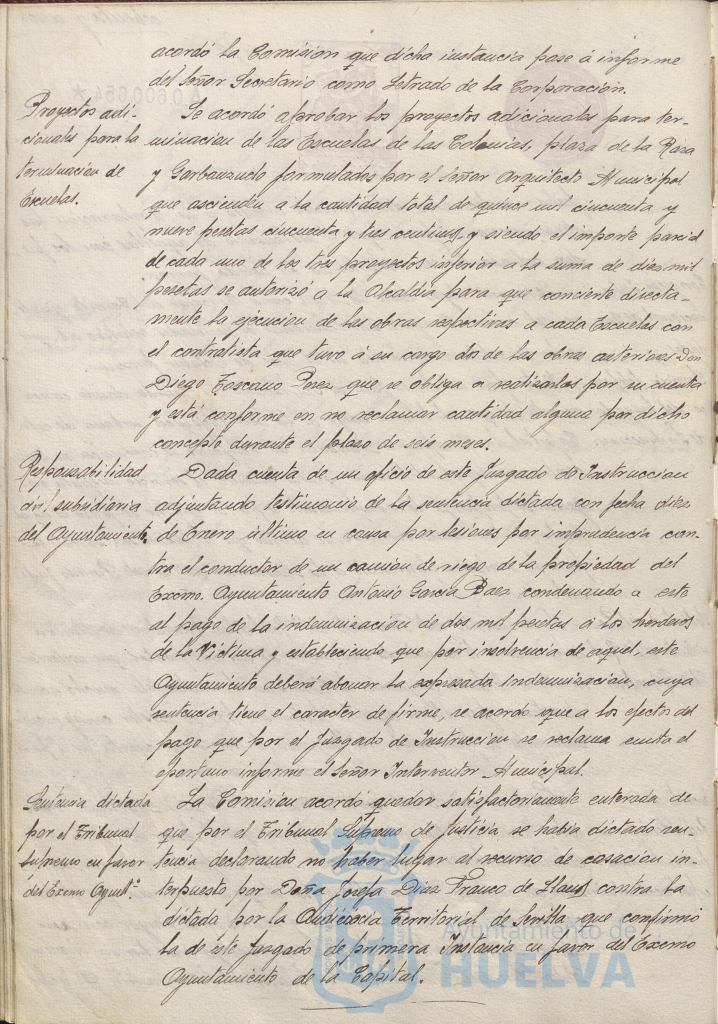 acordó la Comision que dicha instancia pase á informe
del Señor Secretario como Letrado de la Corporación.
Proyectos adi-
cionales para la
terminación de
Escuelas.
Se acordó aprobar los proyectos adicionales para ter-
minacion de las Escuelas de las Colonias, plaza de la Raza
y Garbanzuelo formulados por el Señor Arquitecto Municipal
que ascienden a la cantidad total de quince mil cincuenta y
nueve pesetas cincuenta y tres centimos, y siendo el importe parcial
de cada uno de los tres proyectos inferior a la suma de diez mil
pesetas se autorizó a la Alcaldia para que concierte directa-
mente la ejecucion de las obras respectivas a cada Escuelas con
el contratista que tuvo á su cargo dos de las obras anteriores Don
Diego Toscano Perez que se obliga a realizarlas por su cuenta
y está conforme en no reclamar cantidad alguna por dicho
concepto durante el plazo de seis meses.
Responsabilidad
civil subsidiaria
del Ayuntamiento.
Dada cuenta de un oficio de este Juzgado de Instruccion
adjuntando testimonio de la sentencia dictada con fecha diez
de Enero último en causa por lesiones por imprudencia con-
tra el conductor de un camión de riego de la propiedad del
Excmo. Ayuntamiento Antonio Garcia Baez condenando a este
al pago de la indemnizacion de dos mil pesetas á los herederos
de la Victima y estableciendo que por insolvencia de aquel, este
Ayuntamiento deberá abonar la expresada indemnizacion, cuya
sentencia tiene el caracter de firme, se acordó que a los efectos del
pago que por el Juzgado de Instruccion se reclama emita el
oportuno informe el Señor Interventor Municipal.
Sentencia dictada
por el Tribunal
Supremo en favor
del Excmo Ayunt.º
La Comision acordó quedar satisfactoriamente enterada de
que por el Tribunal Supremo de Justicia se habia dictado sen-
tencia declarando no haber lugar al recurso de casacion in-
terpuesto por Doña Josefa Diaz Franco de Llanos contra la
dictada por la Audiencia Territorial de Sevilla que confirmó
la de este Juzgado de primera Instancia en favor del Excmo
Ayuntamiento de la Capital.
Ayuntamiento de
HUELVA